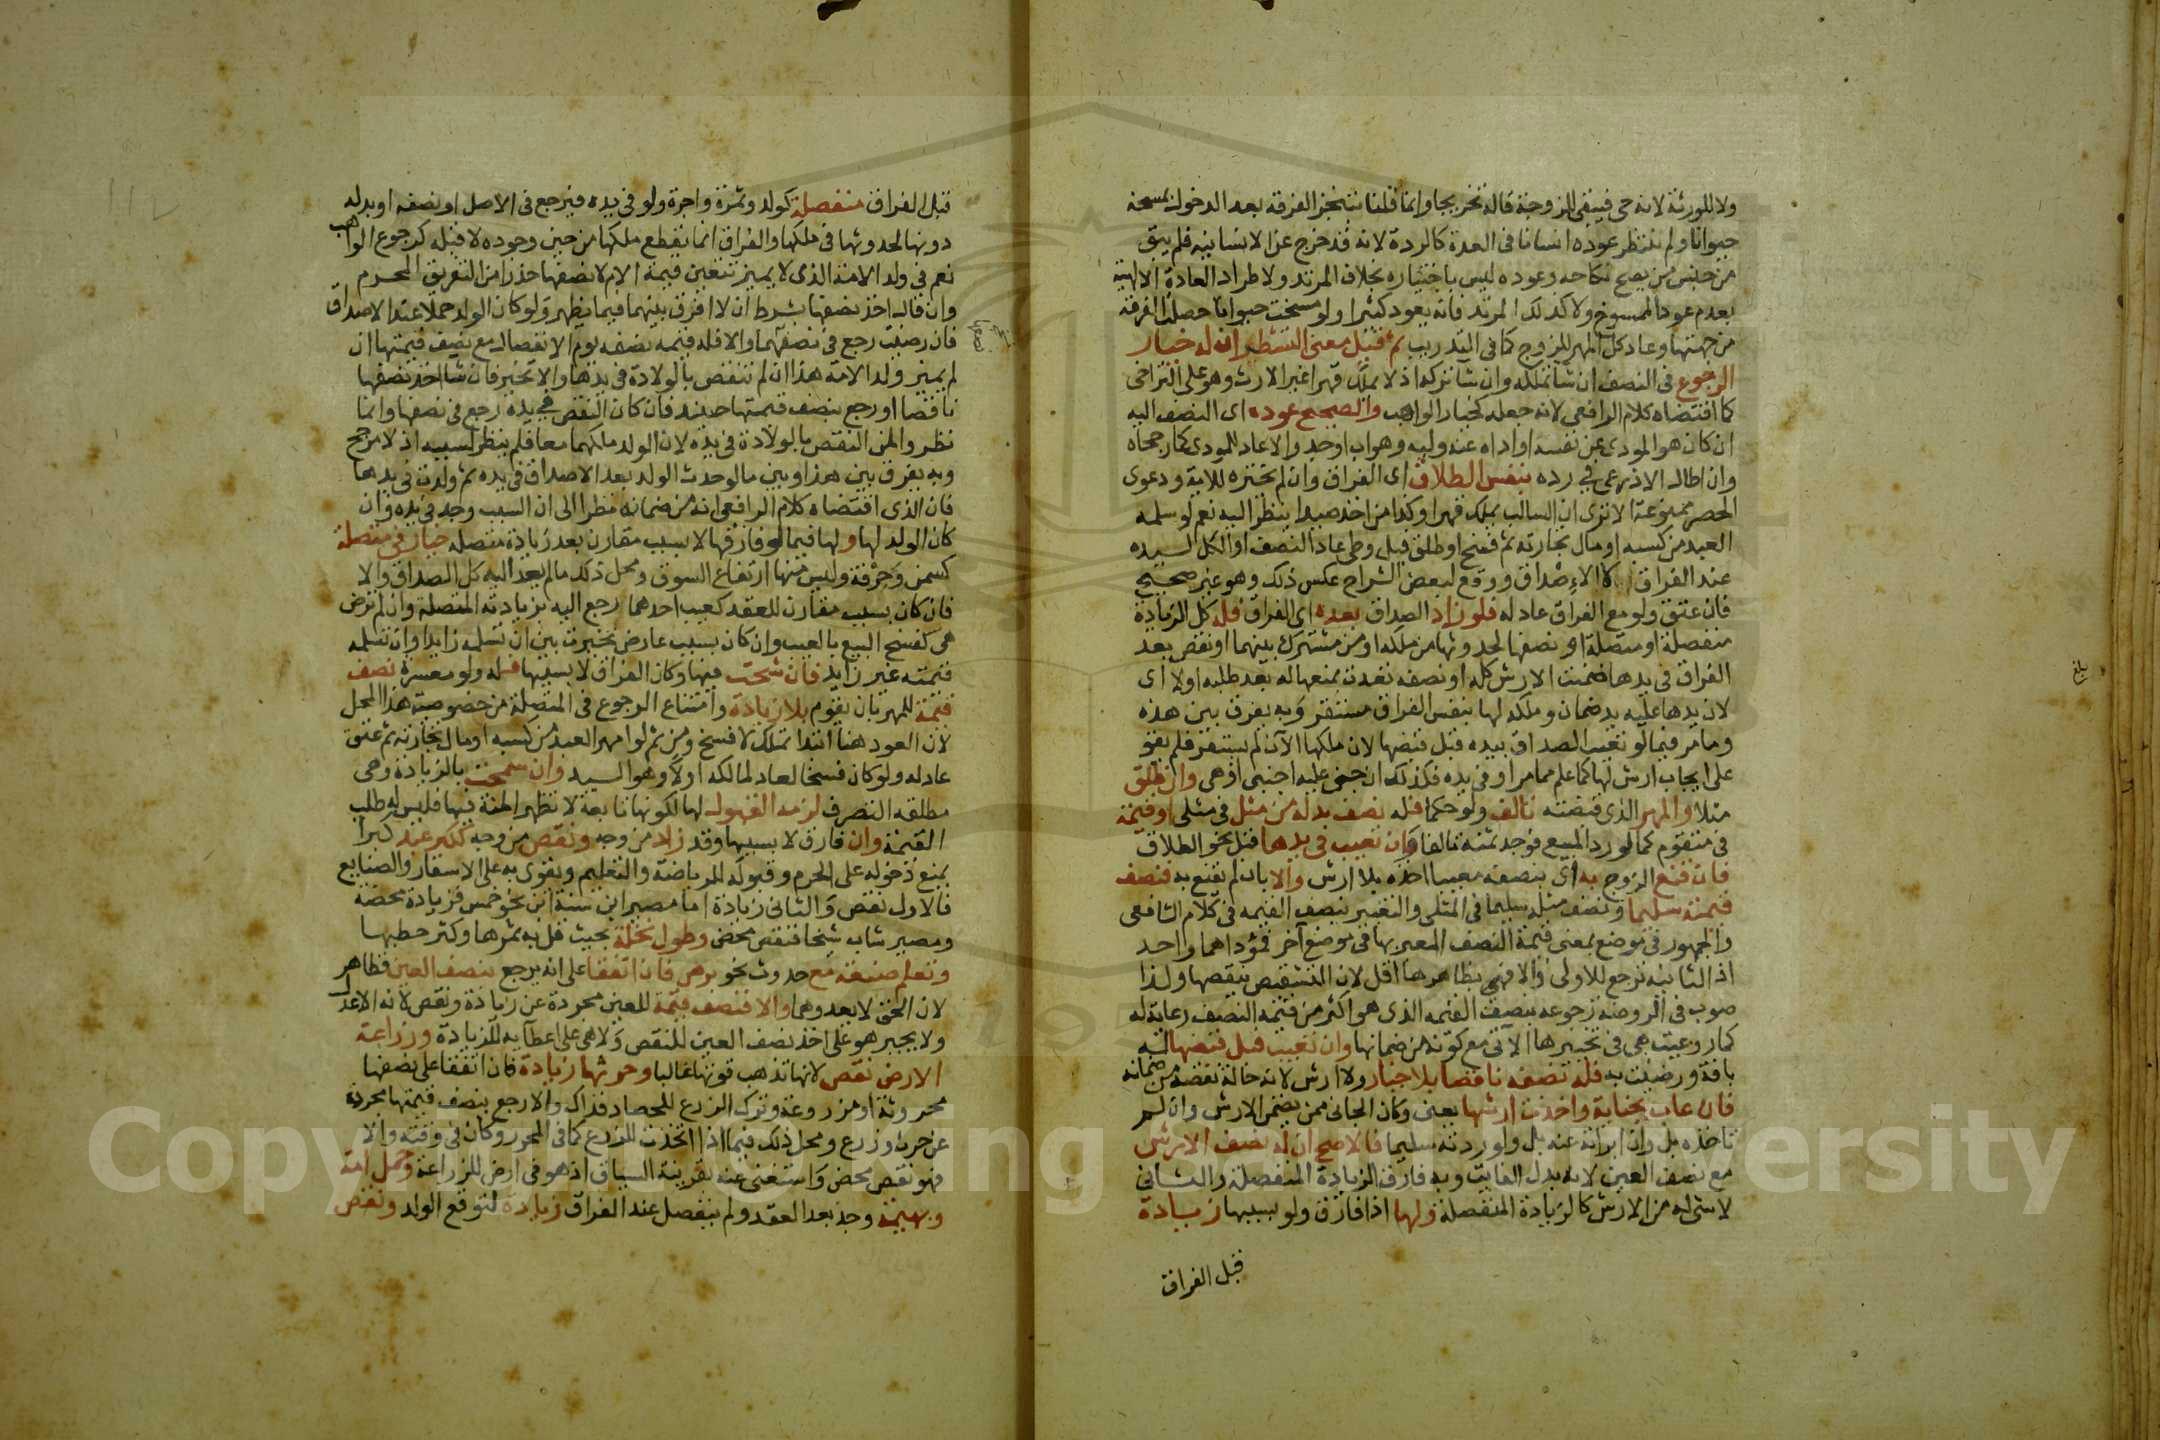 ولا للورثة لانه حي فيبقى للزوجة قاله تخريجا وانما قلنا بتنجز الفرقة بعد الدخول بمسخه
حيوانا ولم ننتظر عوده انسانا في العدة كالردة لانه قد خرج عن الانسانية فلم يبق
من جنس من يصح نكاحه وعوده ليس باختياره بخلاف المرتد ولاطراد العادة الالهية
بعدم عود الممسوخ ولا كذلك المرتد فانه يعود كثيرا ولو مسخت حيوانا حصلت الفرقة
من جهتها وعاد كل المهر للزوج كما في التدريب ثم قيل معنى التشطر ان له خيار
الرجوع في النصف ان شا تملكه وان شا تركه اذ لا يملك قهرا غير الارث وهو على التراخي
كما اقتضاه كلام الرافعي لانه جعله كخيار الواهب والصحيح عوده اي النصف اليه
ان كان هو المودي عن نفسه او اداه عنه وليه وهو اب او جد والا عاد للمودي كما رجحاه
وان اطال الاذرعي في رده بنفس الطلاق اي الفراق وان لم يختره للاية ودعوى
الحصر ممنوعة الا ترى ان السالب يملك قهرا وكذا من اخذ صيدا ينظر اليه نعم لو سلمه
العبد من كسبه او مال تجارته ثم فسخ او طلق قبل وطئ عاد النصف او الكل لسيده
عند الفراق لا الاصداق ووقع لبعض الشراح عكس ذلك وهو غير صحيح
فان عتق ولو مع الفراق عاد له فلو زاد الصداق بعده اي الفراق فله كل الزيادة
منفصلة او متصلة او نصفها لحدوثها من ملكه او من مشترك بينهما او نقص بعد
الفراق في يدها ضمنت الارش كله او نصفه تعدت بمنعها له بعد طلبه اولا اي
لان يدها عليه يد ضمان وملكه لها بنفس الفراق مستقر وبه يفرق بين هذه
وما مر فيما لو تعيب الصداق بيده قبل قبضها لان ملكها الآن لم يستقر فلم يقو
على ايجاب ارش لها كما علم مما مر او في يده فكذلك ان جنى عليه اجنبي او هي وان طلق
مثلا والمهر الذي قبضته تالف ولو حكما فله نصف بدله من مثل في مثلي او قيمة
في متقوم كما لو رد المبيع فوجد ثمنه تالفا وان تعيب في يدها قبل نحو الطلاق
فان قنع الزوج به اي بنصفه معيبا اخذه بلا ارش والا بان لم يقنع به فنصف
قيمته سليما ونصف مثله سليما في المثلي والتعبير بنصف القيمه في كلام الشافعي
والجمهور في موضع بمعنى قيمة النصف المعبر بها في موضع آخر فمؤداهما واحد
اذ الثانيه ترجع للاولى والا فهي بظاهرها اقل لان التشقيص ينقصها ولذا
صوب في الروضة رجوعه بنصف القيمه الذي هو اكثر من قيمه النصف رعاية له
كما روعيت هي في تخييرها الآتي مع كونه من ضمانها وان تعيب قبل قبضها له
بافة ورضيت به فله نصفه ناقصا بلا خيار ولا ارش لانه حالة نقصه من ضمانه
فان عاب بجناية واخذت ارشها يعني وكان الجاني ممن يضمن الارش وان لم
تاخذه بل وان ابراته عنه بل ولو ردته سليما فالاصح ان له نصف الارش
مع نصف العين لانه بدل الفايت وبه فارق الزيادة المنفصلة والثاني
لا شي له من الارش كالزيادة المنفصلة ولها اذا فارق ولو بسببها زيادة
قبل الفراق
بلغ
قبل الفراق منفصلة كولد وثمرة واجرة ولو في يده فيرجع في الاصل او نصفه او بدله
دونها لحدوثها في ملكها والفراق انما يقطع ملكها من حين وجوده لا قبله كرجوع الواهب
نعم في ولد الامة الذي لا يميز تتعين قيمة الام لا نصفها حذرا من التفريق المحرم
وان قال اخذ نصفها بشرط ان لا افرق بينهما فيما يظهر ولو كان الولد حملا عند الاصداق
فان رضيت رجع في نصفهما والا فله قيمه نصفه يوم الانفصال مع نصف قيمتها ان
لم يميز ولد الامة هذا ان لم تنقص بالولادة في يدها والا تخير فان شا اخذ نصفها
ناقصا او رجع بنصف قيمتها حينئذ فان كان النقص في يده رجع في نصفها وانما
نظروا لمن النقص بالولادة في يده لان الولد ملكهما معا فلم ينظر لسببه اذ لا مرجح
وبه يفرق بين هذا وبين ما لو حدث الولد بعد الاصداق في يده ثم ولدت في يدها
فان الذي اقتضاه كلام الرافعي انه من ضمانه نظرا الى ان السبب وجد في يده وان
كان الولد لها ولها فيما لو فارقها لا بسبب مقارن بعد زيادة متصله خيار في متصلة
كسمن وحرفة وليس منها ارتفاع السوق ومحل ذلك مالم يعد اليه كل الصداق والا
فان كان بسبب مقارن للعقد كعيب احدهما رجع اليه بزيادته المتصلة وان لم ترض
هي كفسخ البيع بالعيب وان كان بسبب عارض تخيرت بين ان تسلمه زايدا وان تسلمه
قيمته غير زايد فان شحت فيها وكان الفراق لا بسببها فله ولو معسرة نصف
قيمة للمهر بان يقوم بلا زيادة وامتناع الرجوع في المتصلة من خصوصية هذا المحل
لان العود هنا ابتدا تملك لا فسخ ومن ثم لو امهر العبد من كسبه او مال تجارته ثم عتق
عاد له ولو كان فسخا لعاد لمالكه اولا وهو السيد وان سمحت بالزيادة وهي
مطلقه التصرف لزمه القبول لها لكونها تابعة لا تظهر المنة فيها فليس له طلب
القيمة وان فارق لا بسببها وقد زاد من وجه ونقص من وجه ككبر عبد كبرا
يمنع دخوله على الحرم وقبوله للرياضة والتعليم ويقوى به على الاسفار والصنايع
فالاول نقص والثاني زيادة اما مصير ابن سنة ابن نحو خمس فزيادة محضة
ومصير شاب شيخا فنقص محض وطول نخلة بحيث قل به ثمرها وكثر حطبها
وتعلم صنعة مع حدوث نحو برص فان اتفقا على انه يرجع بنصف العين فظاهر
لان الحق لا يعدوهما والا فنصف قيمة للعين مجردة عن زيادة ونقص لانه الاعدل
ولا يجبر هو على اخذ نصف العين للنقص ولا هي على اعطآيه للزيادة وزراعة
الارض نقص لانها تذهب قوتها غالبا وحرثها زيادة فان اتفقا على نصفها
محروثة او مزروعة وترك الزرع للحصاد فذاك والا رجع بنصف قيمتها مجردة
عن حرث وزرع ومحل ذلك فيما اذا اتخذت للزرع كما في المحرر وكان في وقته والا
فهو نقص محض واستغنى عنه بقرينة السياق اذ هو في ارض للزراعة وحمل امة
وبهيمة وجد بعد العقد ولم ينفصل عند الفراق زيادة لتوقع الولد ونقص